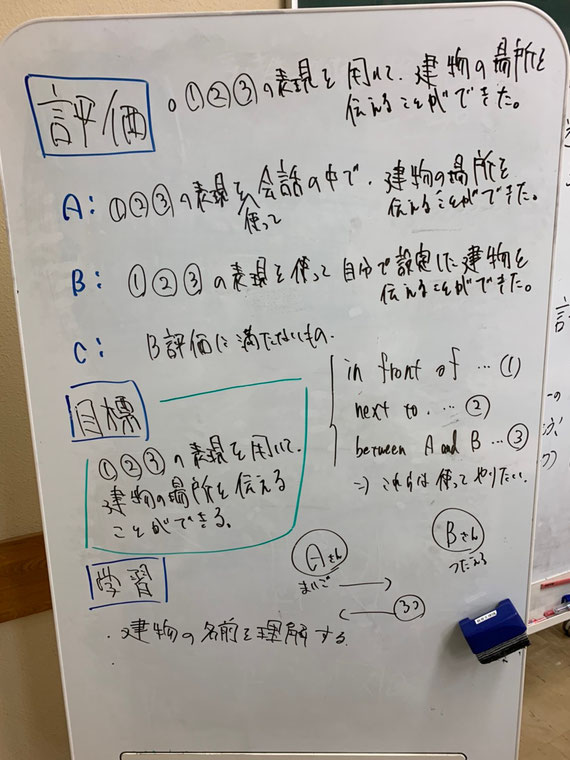 評価
○①②③の表現を用いて、建物の場所を
伝えることができた。
A: ①②③の表現を使って会話の中で、建物の場所を
伝えることができた。
B: ①②③の表現を使って自分で設定した建物を
伝えることができた。
C: B評価に満たないもの.
目標
①②③の表現を用いて、
建物の場所を伝える
ことができる。
in front of … ①
next to. … ②
between A and B … ③
⇒これらは使ってやりたい。
Aさん
まいご
Bさん
つたえる
学習
・建物の名前を理解する